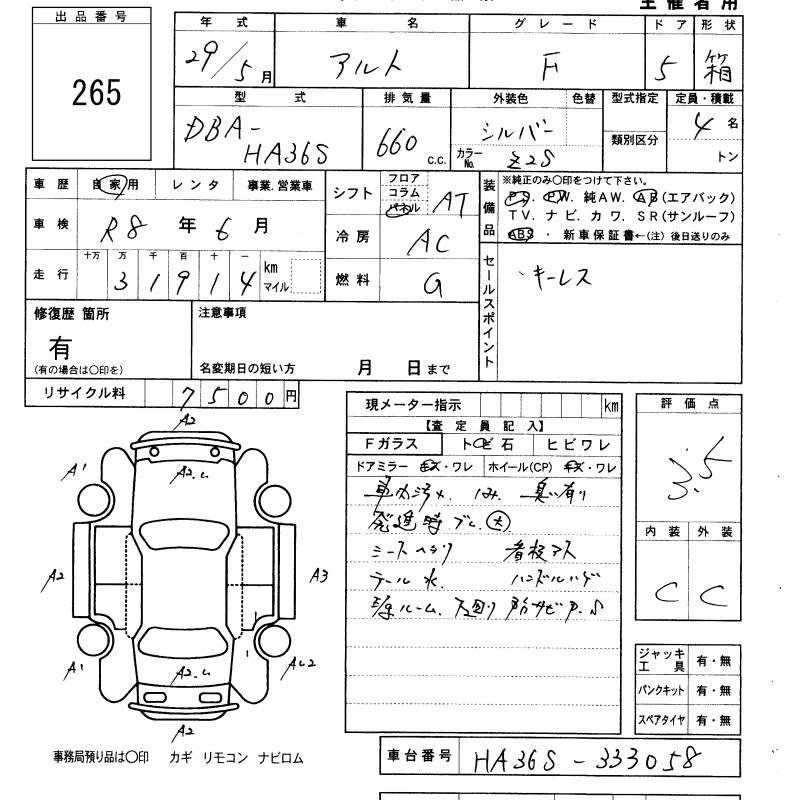 主催者用
出品番号
265
年式 車名 グレード ドア 形状
29/5月 アルト F 5 箱
型式 排気量 外装色 色替 型式指定 定員・積載
DBA-
HA36S
660 c.c.
シルバー
カラーNo. Z2S
類別区分
4名
トン
車歴 自家用 レンタ 事業,営業車
車検 R8年6月
走行 十万 万 千 百 十 一
31914 km マイル
シフト フロア コラム パネル AT
冷房 AC
燃料 G
装備品
※純正のみ〇印をつけて下さい。
PS. PW. 純AW. AB(エアバック)
TV. ナビ. カワ. SR(サンルーフ)
ABS ・ 新車保証書←(注)後日送りのみ
セールスポイント
キーレス
修復歴 箇所
有
(有の場合は〇印を)
注意事項
名変期日の短い方 月 日まで
リサイクル料 7500円
現メーター指示 km
【査定員記入】
Fガラス トビ石 ヒビワレ
ドアミラー キズ・ワレ ホイール(CP) キズ・ワレ
車内汚れ. コゲ. 臭い有り
発進時ブレ. 大
シートヘタリ 看板アス
テール水 ハンドルハゲ
下回り 防サビP.S
評価点
3.5
内装 外装
C C
A2
A2.
A1
A2
A3
A1
AU2
A2.
A2
ジャッキ工具 有・無
パンクキット 有・無
スペアタイヤ 有・無
事務局預り品は〇印 カギ リモコン ナビロム
車台番号 HA36S-333058